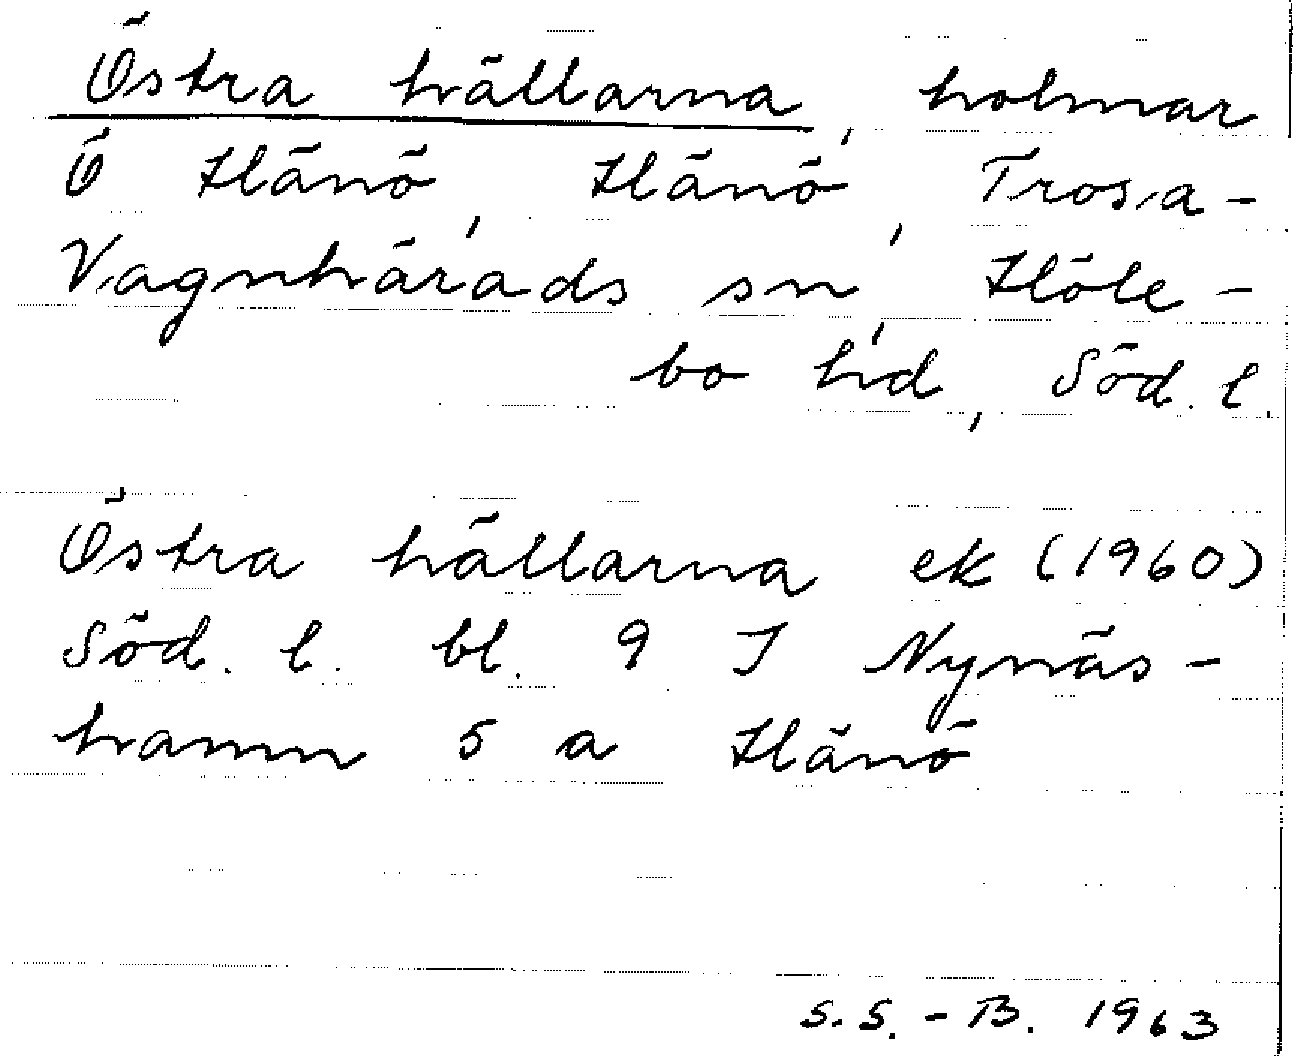 Östra hällarna, holmar
Ö Hänö, Hänö, Trosa-
Vagnhärads sn, Höle-
bo hd, Söd. l.
Östra hällarna ek (1960)
Söd. l. bl. 9 J Nynäs-
hamn 5 a Hänö
S.S.-B. 1963